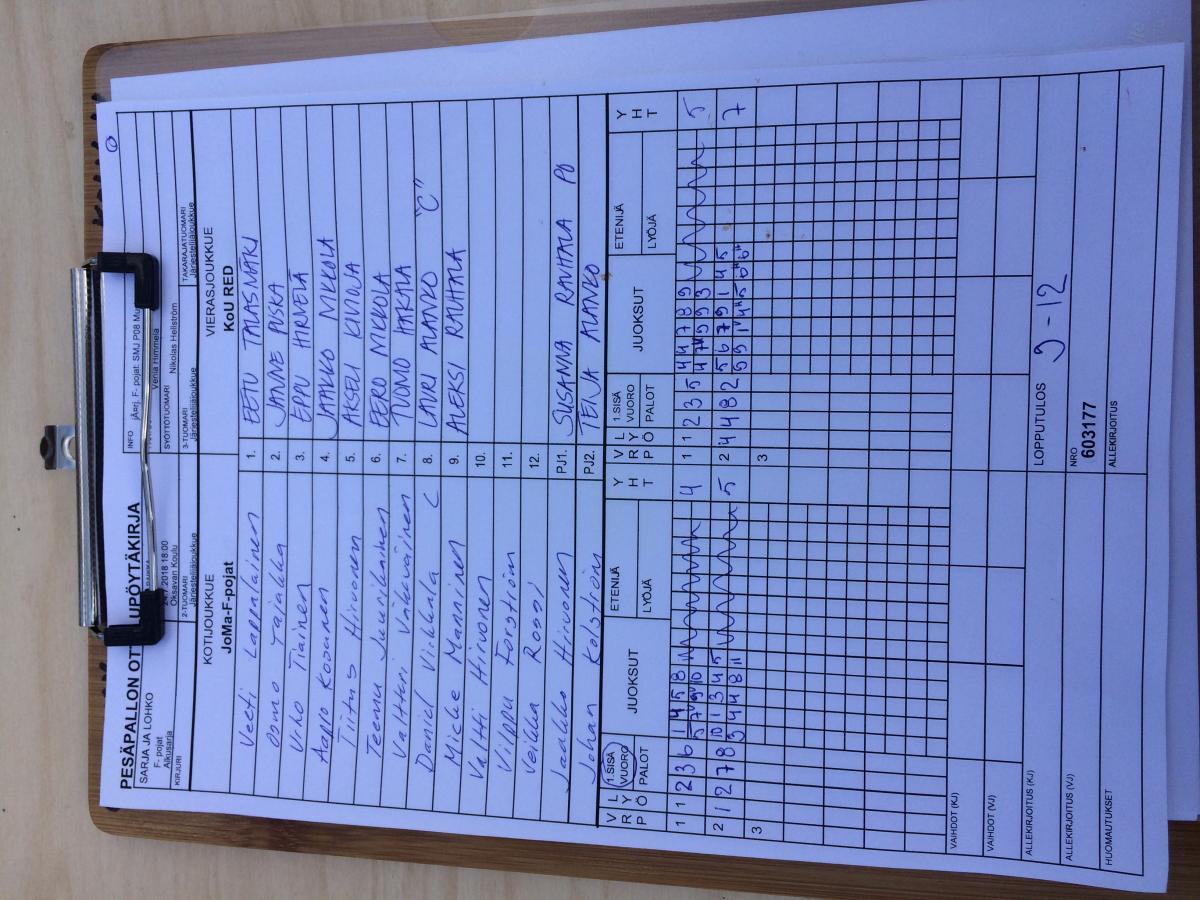 PESÄPALLON OTT UPÖYTÄKIRJA
SARJA JA LOHKO
F- pojat
Alkusarja
24.7.2018 18:00
Oksavan Koulu
INFO
jÄrj. F- pojat: SMJ P08 Mu
Venla Himmela
KIRJURI
2-TUOMARI
Järjestelijäjoukkue
3-TUOMARI
Järjestelijäjoukkue
SYÖTTÖTUOMARI
Nikolas Hellström
TAKARAJATUOMARI
Järjestelijäjoukkue
KOTIJOUKKUE VIERASJOUKKUE
JoMa-F-pojat KoU RED
Veeti Lappalainen 1. EETU TALASMÄKI
Osmo Tajakka 2. JANNE PUSKA
Urho Tiainen 3. EPPU HIRVELÄ
Aappo Kosunen 4. JAAKKO MIKKOLA
Tiitus Hirvonen 5. AKSELI KIVIOJA
Teemu Juurikainen 6. EERO MIKKOLA
Valtteri Väkeväinen 7. TUOMO HAKALA
Daniel Virkkala C 8. LAURI ALANKO "C"
Micke Manninen 9. ALEKSI RAUHALA
Valtti Hirvonen 10.
Vilppu Forsström 11.
Veikka Rossi 12.
Jaakko Hirvonen PJ1. SUSANNA RAUHALA PO
Johan Kolström PJ2. TEIJA ALANKO
V R P L Y Ö 1.SISÄ VUORO PALOT JUOKSUT ETENIJÄ LYÖJÄ Y H T V R P L Y Ö 1.SISÄ VUORO PALOT JUOKSUT ETENIJÄ LYÖJÄ Y H T
1 1 2 3 6 1 4 5 8 4 1 1 2 3 5 4 4 7 8 9 5
2 1 2 7 8 10 1 3 4 5 5 2 4 4 8 2 5 6 7 9 1 4 5 7
3 4 4 8
3 3
VAIHDOT (KJ)
VAIHDOT (VJ)
ALLEKIRJOITUS (KJ) LOPPUTULOS 9 - 12
ALLEKIRJOITUS (VJ) NRO 603177
HUOMAUTUKSET ALLEKIRJOITUS